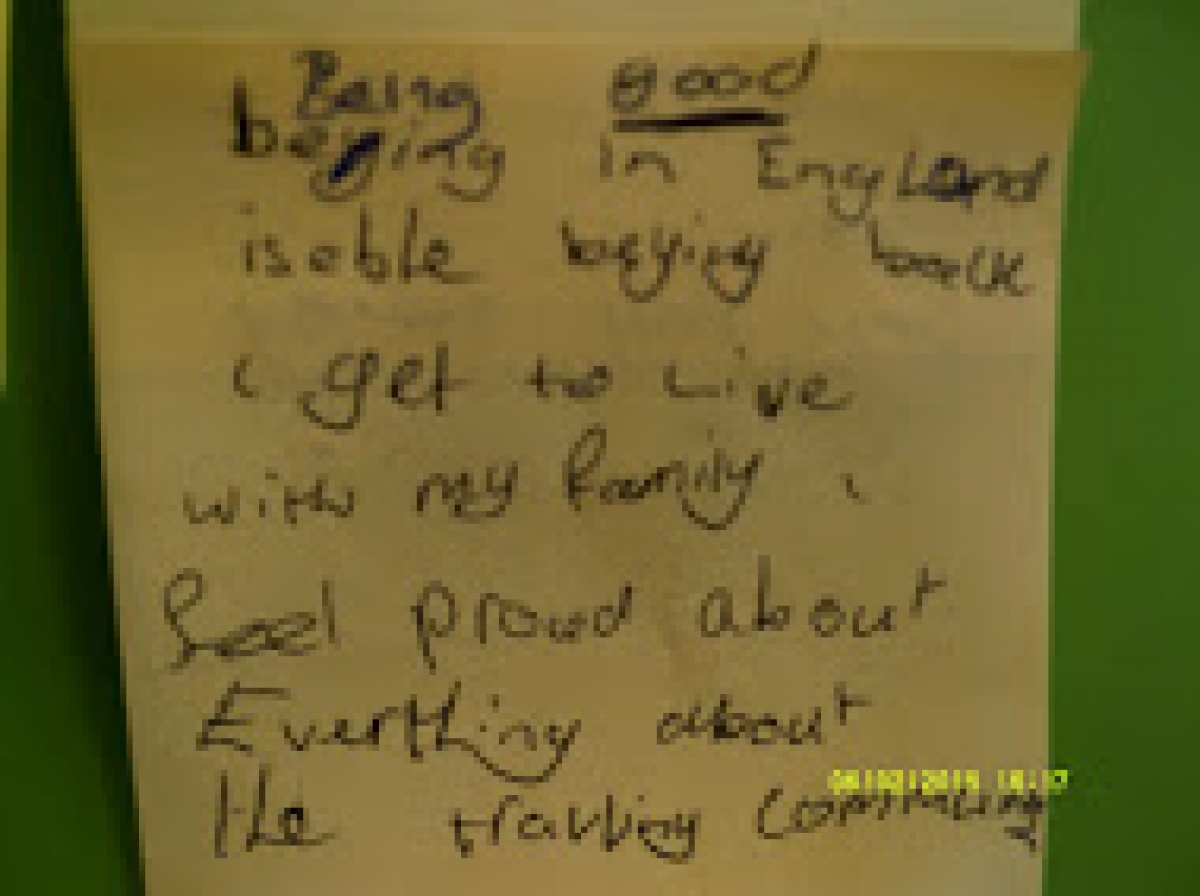 Being good
being in England
is able beying back
i get to Live
with my family i
feel proud about
Everthing about
the travling